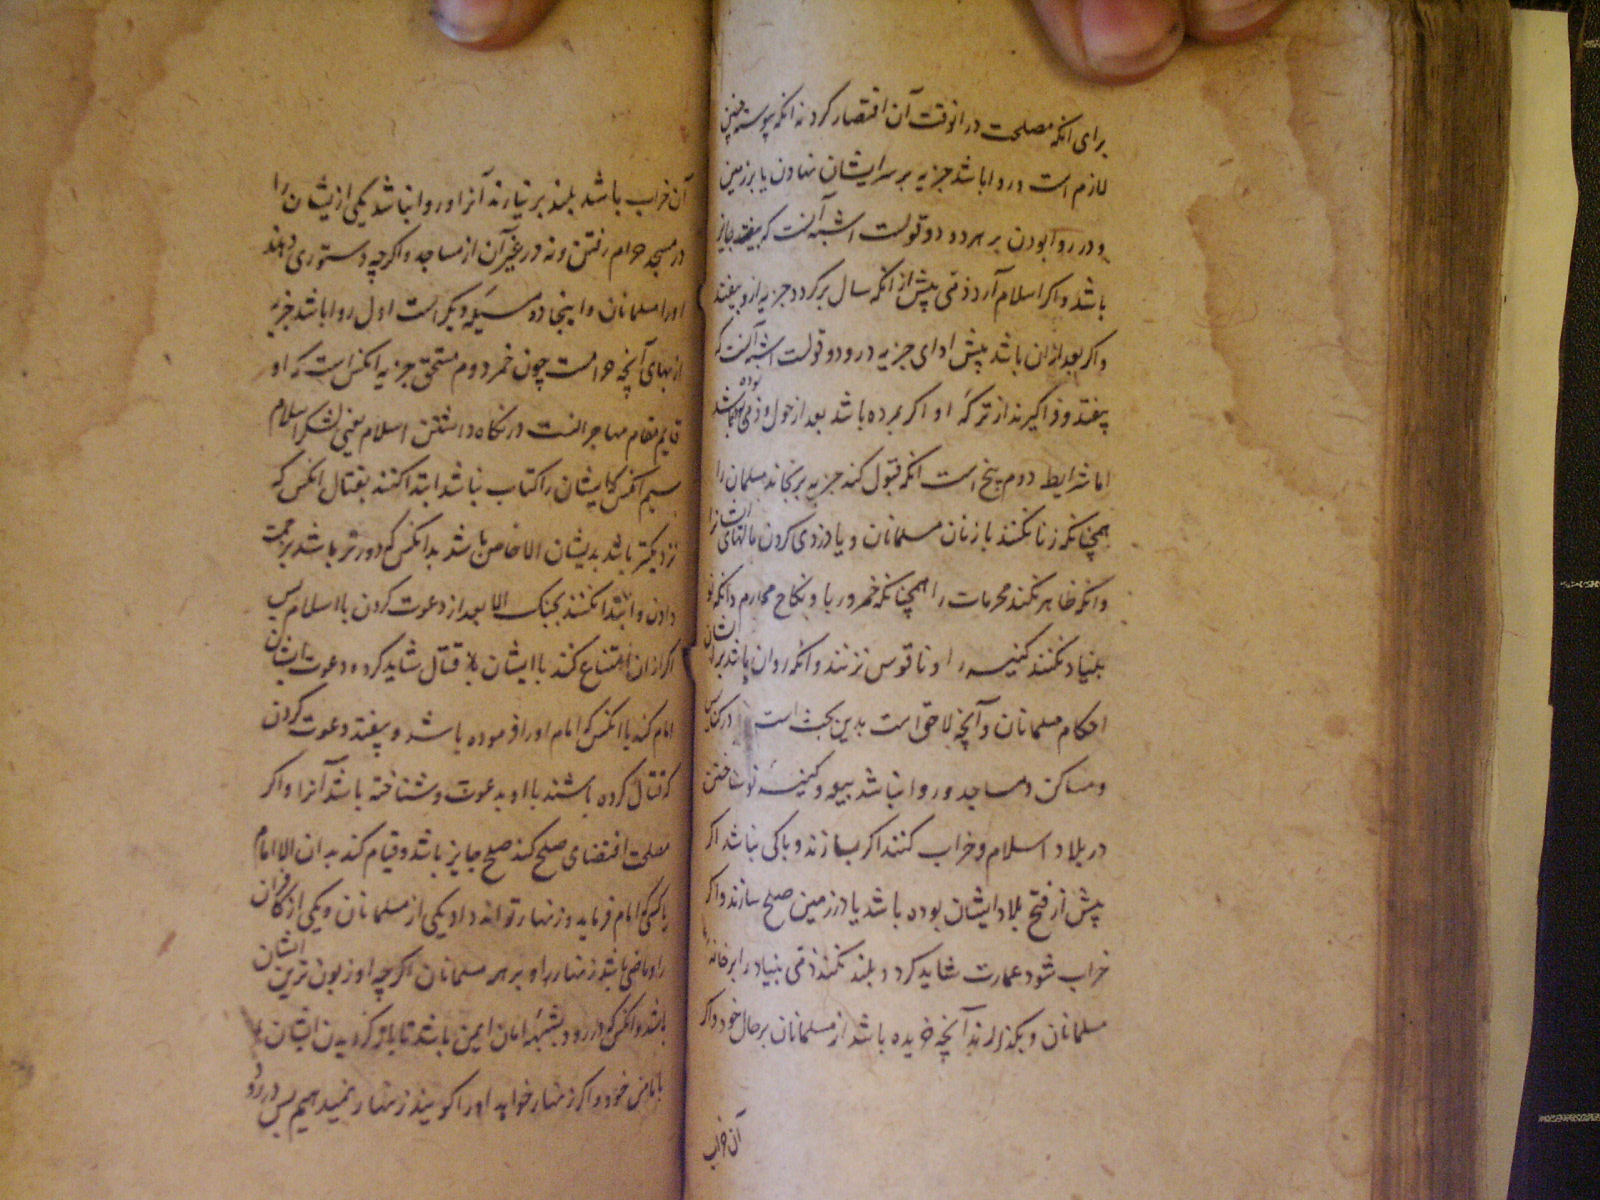 برای انکه مصلحت در انوقت آن اقتصار کرد نه انکه پیوسته چنین
لازم است و روا باشد جزیه بر سر ایشان نهادن یا بر زمین
و در روا بودن بر هر دو دو قولست اشبه آنست که بیفتد جایز
باشد و اکر اسلام آرد ذمی پیش از انکه سال بر کردد جزیه از و بیفتد
و اکر بعد از ان باشد پیش ادای جزیه درو دو قولست اشبه آنست که
بیفتد و فرا کیرند از ترکهٔ او اکر مرده باشد بعد از حول و ذمی بوده باشد
اما شرایط دوم پنج است انکه قبول کند جزیه برنجاند مسلمان را
همچنانکه زنا نکنند با زنان مسلمانان و یا دزدی کردن مالهای ایشان را
و انکه ظاهر نکنند محرمات را همچنانکه خمر و ربا و نکاح محارم و انکه نو
بنیاد نکنند کنیسه را و ناقوس نزنند و انکه روان باشد بر ایشان
احکام مسلمانان و آنچه لاحق است بدین بحث است در کنایس
و مساکن و مساجد و روا نباشد بیعه و کنیسهٔ نو ساختن
در بلاد اسلام و خراب کنند اکر بسازند و باکی نباشد اکر
پیش از فتح بلاد ایشان بوده باشد یا در زمین صلح سازند و اکر
خراب شود عمارت شاید کرد و بلند نکند ذمی بنیاد را بر خانهٔ
مسلمانان و بکذارند آنچه خریده باشد از مسلمانان بر حال خود و اکر
آن خراب
آن خراب باشد بلند بر نیارند آنرا و روا نباشد یکی از ایشان را
در مسجد حرام رفتن و نه در غیر آن از مساجد و اکر چه دستوری دهند
اورا مسلمانان و اینجا دو مسئله دیکر است اول روا باشد جزیه
از بهای آنچه حرامست چون خمر دوم مستحق جزیه انکس است که او
قایم مقام مهاجرانست در نکاه داشتن اسلام یعنی لشکر اسلام
سیم انکس که ایشان را کتاب نباشد ابتدا کنند بقتال انکس که
نزدیکتر باشد بدیشان الا خاص باشد بدانکس که دورتر باشد
دادن و ابتدا نکنند بجنک الا بعد از دعوت کردن با اسلام پس
اکر از ان امتناع کنند با ایشان قتال شاید کرد و دعوت ایشان
امام کند یا انکس که امام اورا فرموده باشد و بیفتد دعوت کردن
که قتال کرده باشند با او بدعوت و شناخته باشد آنرا و اکر
مصلحت اقتضای صلح کند صلح جایز باشد و قیام کند به ان الا امام
یا کسی که امام فرماید و زنهار تواند داد یکی از مسلمانان و یکی از کافران
را و ماضی باشد زنهار او بر هر مسلمانان اکر چه او زبون ترین ایشان
باشد و انکس که در رود بشبههٔ امان ایمن باشد تا باز کردیدن ایشان
با مامن خود و اکر زنهار خواهد اورا کویند زنهار نمیدهیم پس در رود